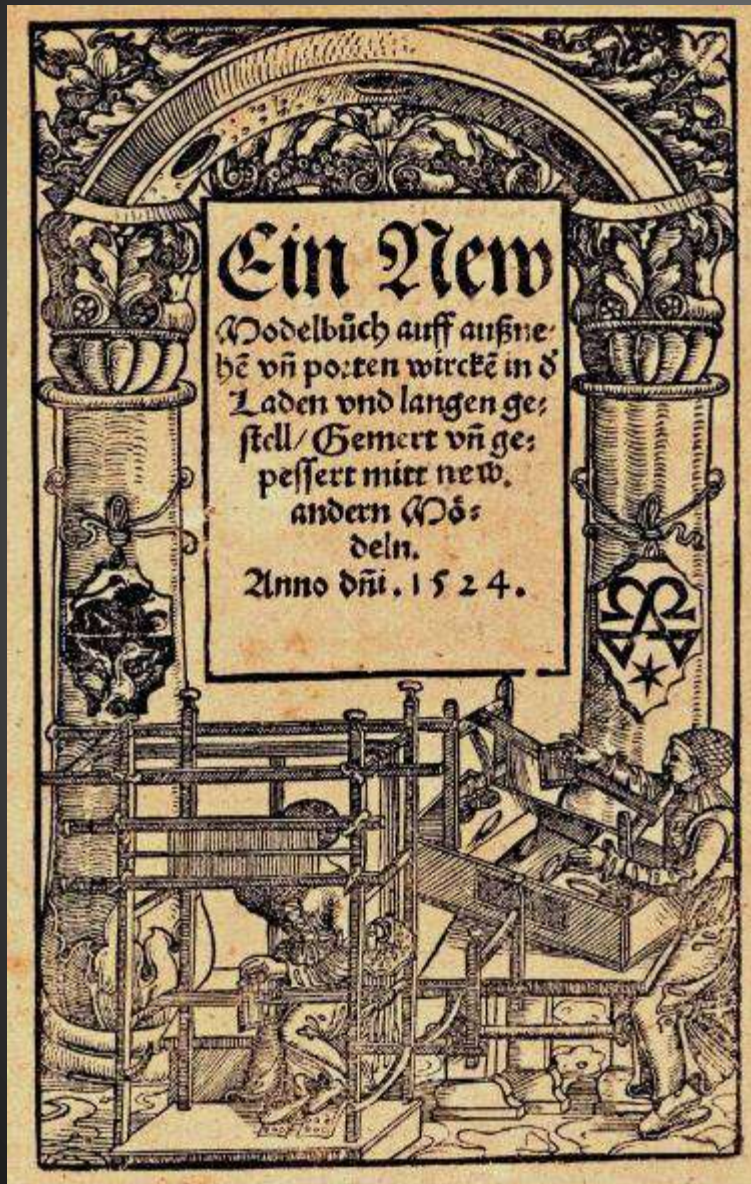 Ein New
Modelbůch auff außne-
hẽ vñ porten wirckẽ in d̛
Laden vnd langen ge-
stell/ Gemert vñ ge-
pessert mitt new.
andern Mö-
deln.
Anno dñi. 1524.